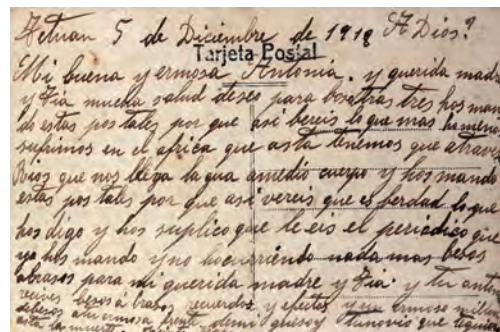 Tetuan 5 de Diciembre de 1918 A Dios?
Tarjeta Postal
Mi buena y ermosa Antonia. y querida madre
y Tia mucha salud deseo para bosotras tres hos man
do estas postales por que asi bereis lo que mas
sufrimos en el africa que asta tenemos que atraves
Rios que nos llega la gua amedio cuerpo y hos mando
estas postales por que asi vereis que es berdad lo que
hos digo y hos suplico que le eis el periodico que
yo hos mando y no hocurriendo nada mas besos
abrasos para mi querida madre y Tia y tu
recives besos a brasos recuerdos y efectos y
de besos a tu ermosa frente de mi tunovio que
asta la muerte